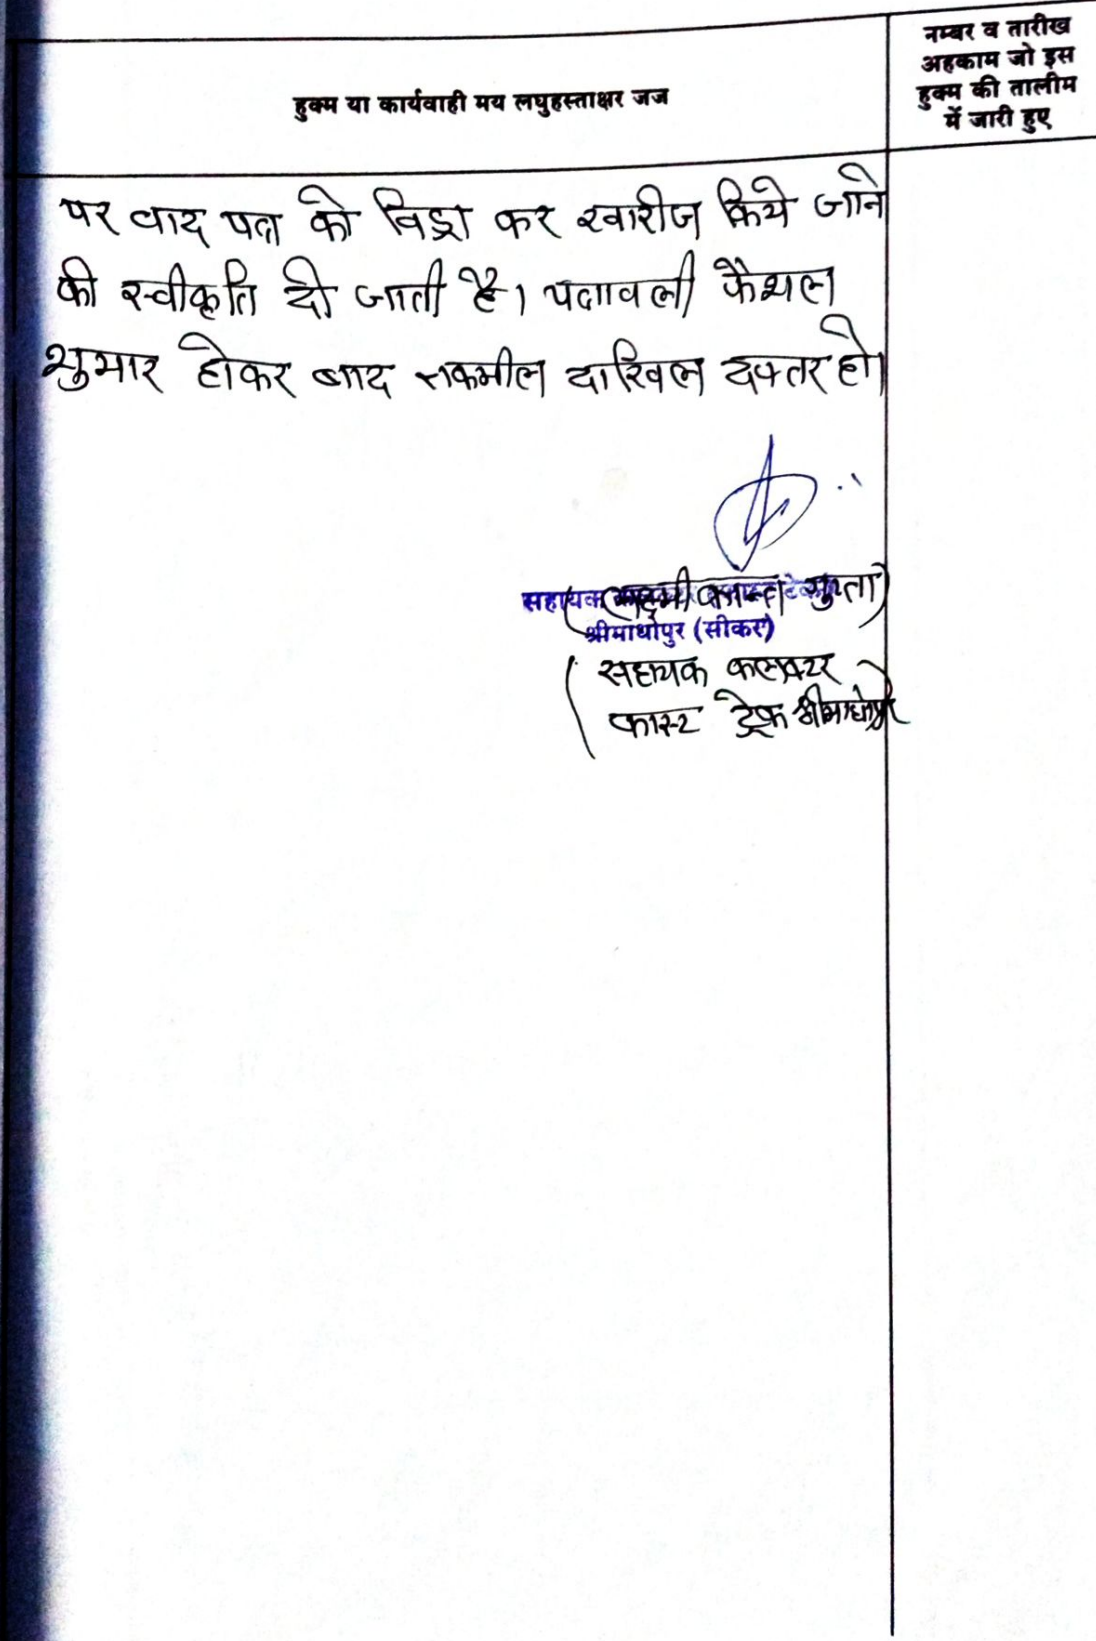 हुक्म या कार्यवाही मय लघुहस्ताक्षर जज
नम्बर व तारीख
अहकाम जो इस
हुक्म की तालीम
में जारी हुए
पर वाद पत्र को विड्रा कर खारीज किये जाने
की स्वीकृति दी जाती है। पत्रावली फैशल
शुमार होकर बाद तकमील दाखिल दफ्तर हो।
(लक्ष्मी कान्त गुप्ता)
सहायक
श्रीमाधोपुर (सीकर)
(सहायक कलक्टर
फास्ट ट्रेक श्रीमाधोपुर)